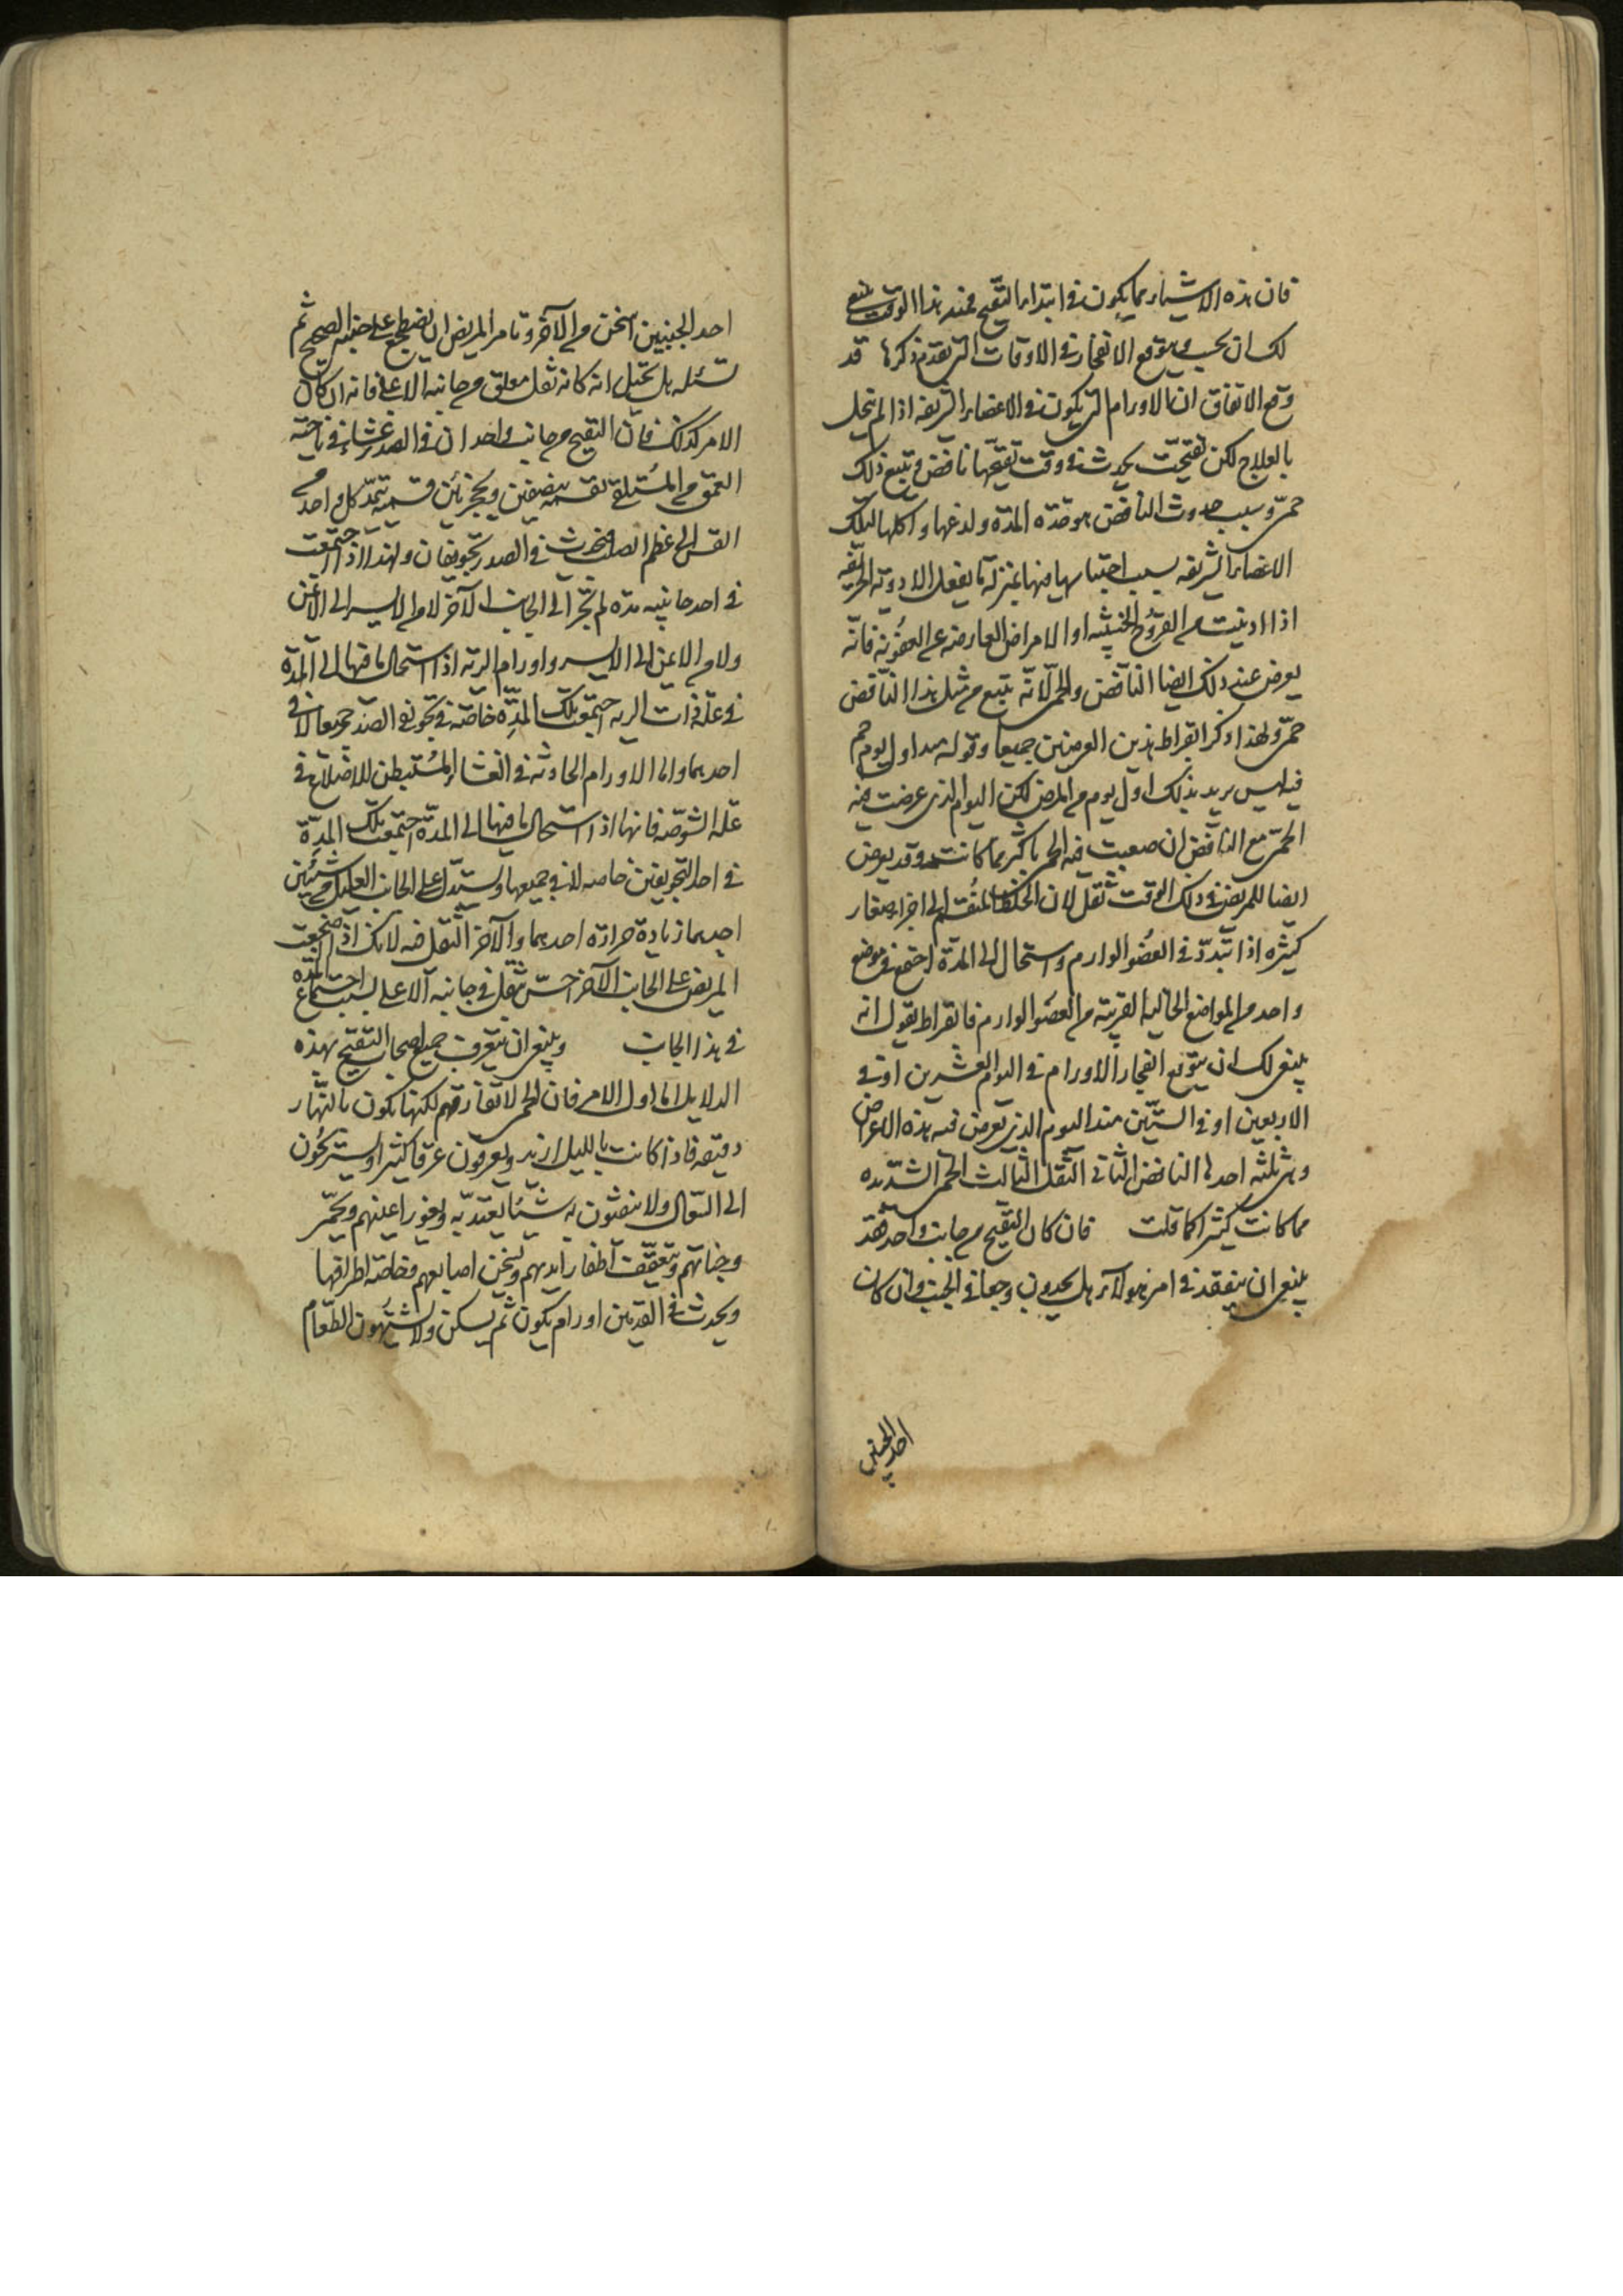 فان هذه الاشياء ربما يكون في ابتداء التقيح فمنذ هذا الوقت ينبغي
لك ان تحسب ويتوقع الانفجار في الاوقات التي تقدم ذكرها قد
وقع الاتفاق ان الاورام التي يكون في الاعضاء الشريفه اذا لم تتحلل
بالعلاج لكن تقيحت يحدث في وقت تقيحها نافض ويتبع ذلك
حمى وسبب حدوث النافض هو حده المدة ولدغها واكلها لتلك
الاعضاء الشريفه بسبب احتباسها فيها بمنزلة ما يفعل الادوية الحريفه
اذا ادنيت من القروح الخبيثه او الامراض العارضه عن العفونة فانه
يعرض عند ذلك ايضا النافض والحمى لانه يتبع مثل هذا النافض
حمى ولهذا ذكر ابقراط هذين العرضين جميعا وقوله من اول يوم حم
فيه ليس يريد بذلك اول يوم من المرض لكن اليوم الذي عرضت فيه
الحمى مع النافض ان صعبت فيه الحمى باكثر مما كانت وقد يعرض
ايضا للمريض في ذلك الوقت ثقل لان الخلط المنقسم الى اجزاء صغار
كثيره اذا تبدد في العضو الوارم واستحال الى المدة اجتمع في موضع
واحد من المواضع الخالية القريبة من العضو الوارم فابقراط يقول انه
ينبغي لك ان يتوقع انفجار الاورام في اليوم العشرين او في
الاربعين او في الستين منذ اليوم الذي تعرض فيه هذه الاعراض
وهي ثلثه احدها النافض الثاني الثقل الثالث الحمى الشديده
مما كانت كثيرا كما قلت فان كان التقيح من جانب واحد فقد
ينبغي ان يتفقد في امر هولاء هل يجدون وجعا في الجنب وان كان
احد الجنبين
احد الجنبين اسخن من الآخر وتامر المريض ان يضطجع على جنبه الصحيح ثم
تسئله هل تخيل انه كانه ثقل معلق من جانبه الاعلى فانه ان كان
الامر كذلك فان التقيح من جانب واحد ان في الصدر غشاء في ناحية
العمق من المستلقى تقسمه بنصفين وبجزئين قسمة تمتد كل واحد من
القس الى عظم الصلب فيحدث في الصدر تجويفان ولهذا اذا اجتمعت
في احد جانبيه مده لم تجر الى الجانب الآخر لا من الايسر الى الايمن
ولا من الايمن الى الايسر واورام الرية اذا استحال ما فيها الى المدة
في علة ذات الريه اجتمعت تلك المدة خاصة في تجويفي الصدر جميعا لا في
احدهما واما الاورام الحادثه في الغشاء المستبطن للاضلاع في
علة الشوصه فانها اذا استحال ما فيها الى المدة اجتمعت تلك المدة
في احد التجويفين خاصه لا في جميعها ويستدل على الجانب العليل من شيئين
احدهما زيادة حرارة احدهما والآخر الثقل فيه لانك اذا اضجعت
المريض على الجانب الآخر احس بثقل في جانبه الاعلى بسبب اجتماع المدة
في هذا الجانب وينبغي ان يتعرف جميع اصحاب التقيح بهذه
الدلايل اما اول الامر فان الحمى لا تفارقهم لكنها تكون بالنهار
دقيقه فاذا كانت بالليل ازيد ويعرقون عرقا كثيرا ويستريحون
الى السعال ولا ينفثون به شيئا يعتد به وتغور اعينهم وتحمر
وجناتهم وتتعقف اظفار ايديهم ويسخن اصابعهم وخاصة اطرافها
ويحدث في القدمين اورام يكون ثم يسكن ولا يشتهون الطعام